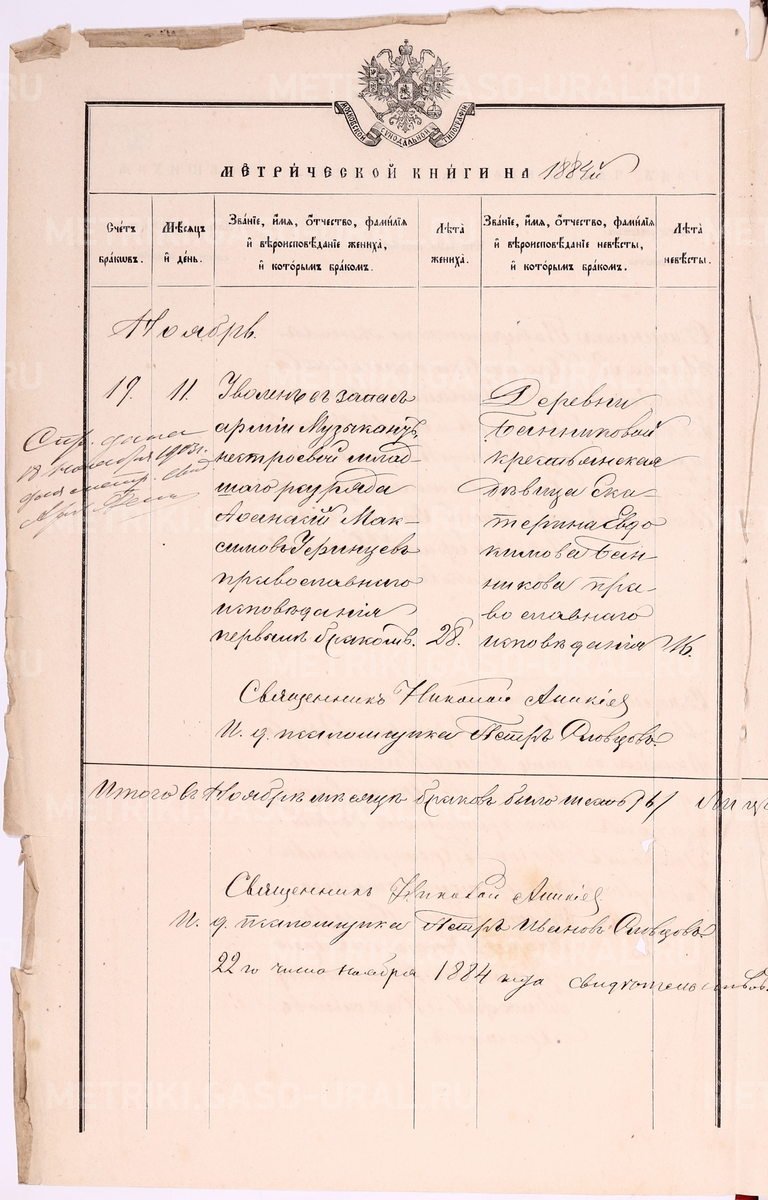 МОСКОВСКОЙ СѴНОДАЛЬНОЙ ТИПОГРАФІИ
МЕТРИ́ЧЕСКОЙ КНИ́ГИ НА 1884й
Сче́тъ бра́кѡвъ.
Мѣ́сѧцъ и҆ де́нь.
Зва́нїе, и҆́мѧ, ѻ҆́тчество, фами́лїѧ и҆ вѣроисповѣ́данїе жениха̀, и҆ кото́рымъ бра́комъ.
Лѣ́та жениха̀.
Зва́нїе, и҆́мѧ, ѻ҆́тчество, фами́лїѧ и҆ вѣроисповѣ́данїе невѣ́сты, и҆ кото́рымъ бра́комъ.
Лѣ́та невѣ́сты.
Ноябрь.
19. 11.
Уволенъ въ запасъ
арміи Музыкантъ
нестроевой млад-
шаго разряда
Аѳанасій Мак-
симовъ
православнаго
исповѣданія
первымъ бракомъ. 28.
Деревни
Банниковой
крестьянская
дѣвица Ека-
терина Евдо
кимова Бан-
никова пра-
вославнаго
исповѣданія 16.
Спр. дана
18 1903 г.
Священникъ Николай
И. д. псаломщика Петръ Словцовъ.
Итого въ Ноябрѣ мѣсяцѣ браковъ было шесть /6/
Священникъ Николай
И. д. псаломщика Петръ Ивановъ Словцовъ.
22го числа ноября 1884 года
METRIKI.GASO-URAL.RU